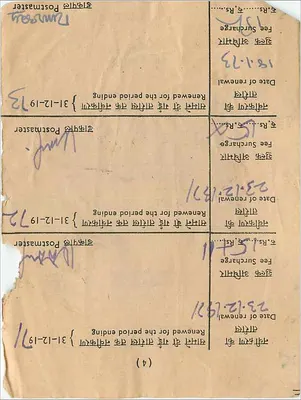 (4)
नवीकरण की
तारीख
Date of renewal
23-12-1971
शुल्क अधिभार
Fee Surcharge
रु. Rs.
सामने दी गई तारीख तक नवीकरण
Renewed for the period ending
31-12-1971
डाकपाल
Postmaster
नवीकरण की
तारीख
Date of renewal
23-12-1971
शुल्क अधिभार
Fee Surcharge
रु. Rs.
सामने दी गई तारीख तक नवीकरण
Renewed for the period ending
31-12-1972
डाकपाल
Postmaster
नवीकरण की
तारीख
Date of renewal
18.1.73
शुल्क अधिभार
Fee Surcharge
रु. Rs.
सामने दी गई तारीख तक नवीकरण
Renewed for the period ending
31-12-1973
डाकपाल
Postmaster